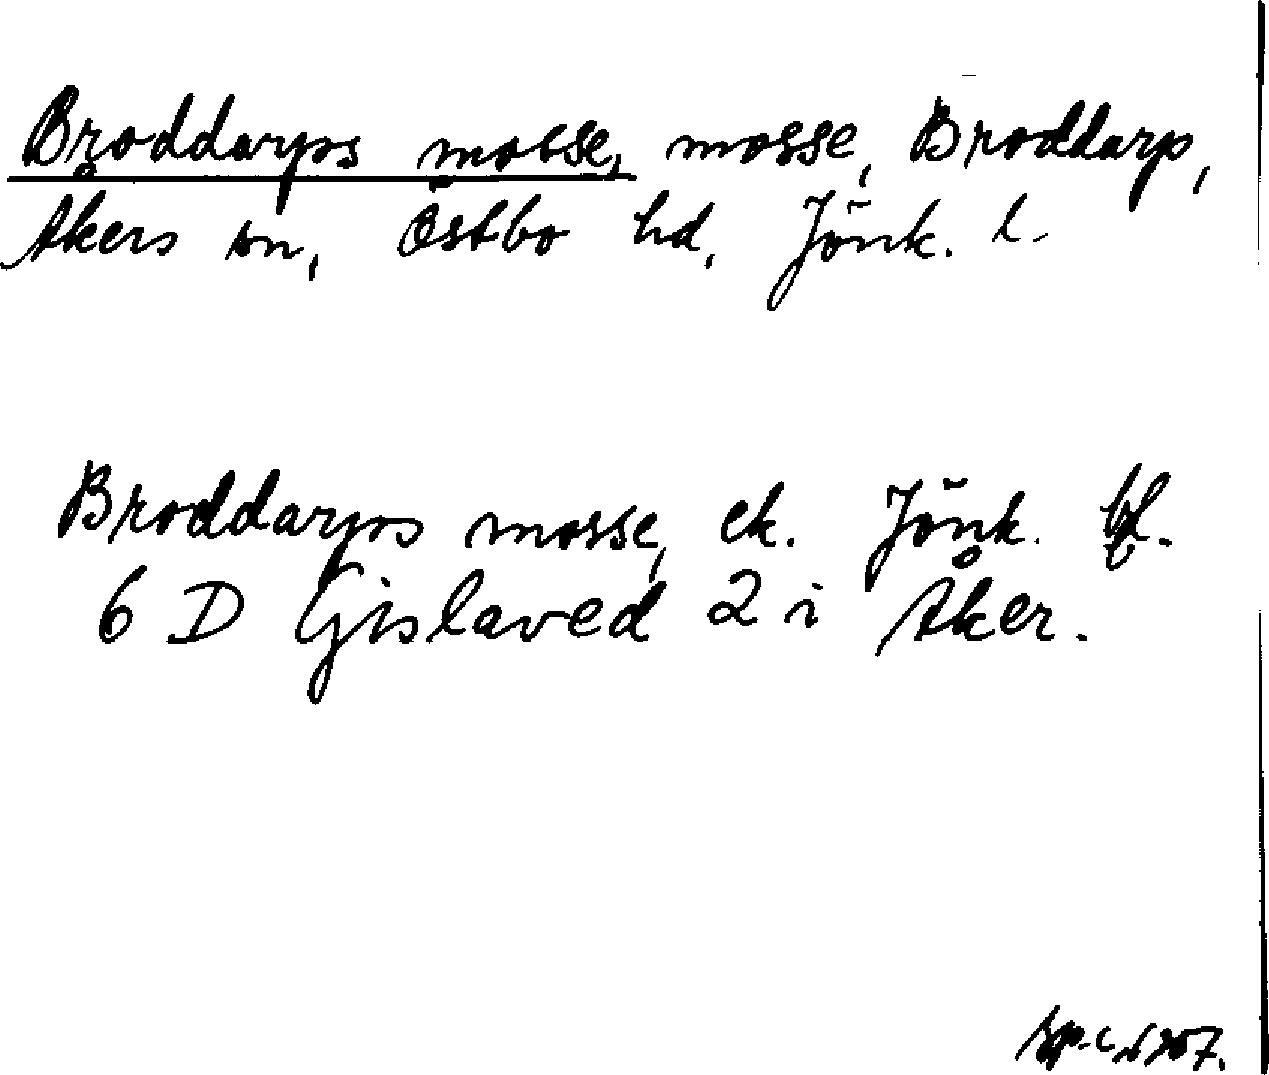 Broddarps mosse, mosse, Broddarp,
Åkers sn, Östbo hd, Jönk. l.
Broddarps mosse, ek. Jönk. bl.
6 D Gislaved 2 i Åker.